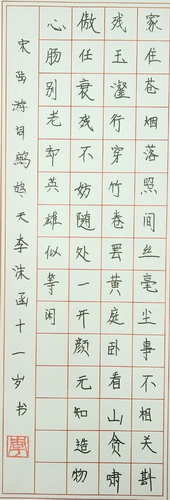 家住苍烟落照间丝毫尘事不相关斟
残玉瀣行穿竹卷罢黄庭卧看山贪啸
傲任衰残不妨随处一开颜元知造物
心肠别老却英雄似等闲
宋陆游词鹧鸪天李沫函十一岁书
李